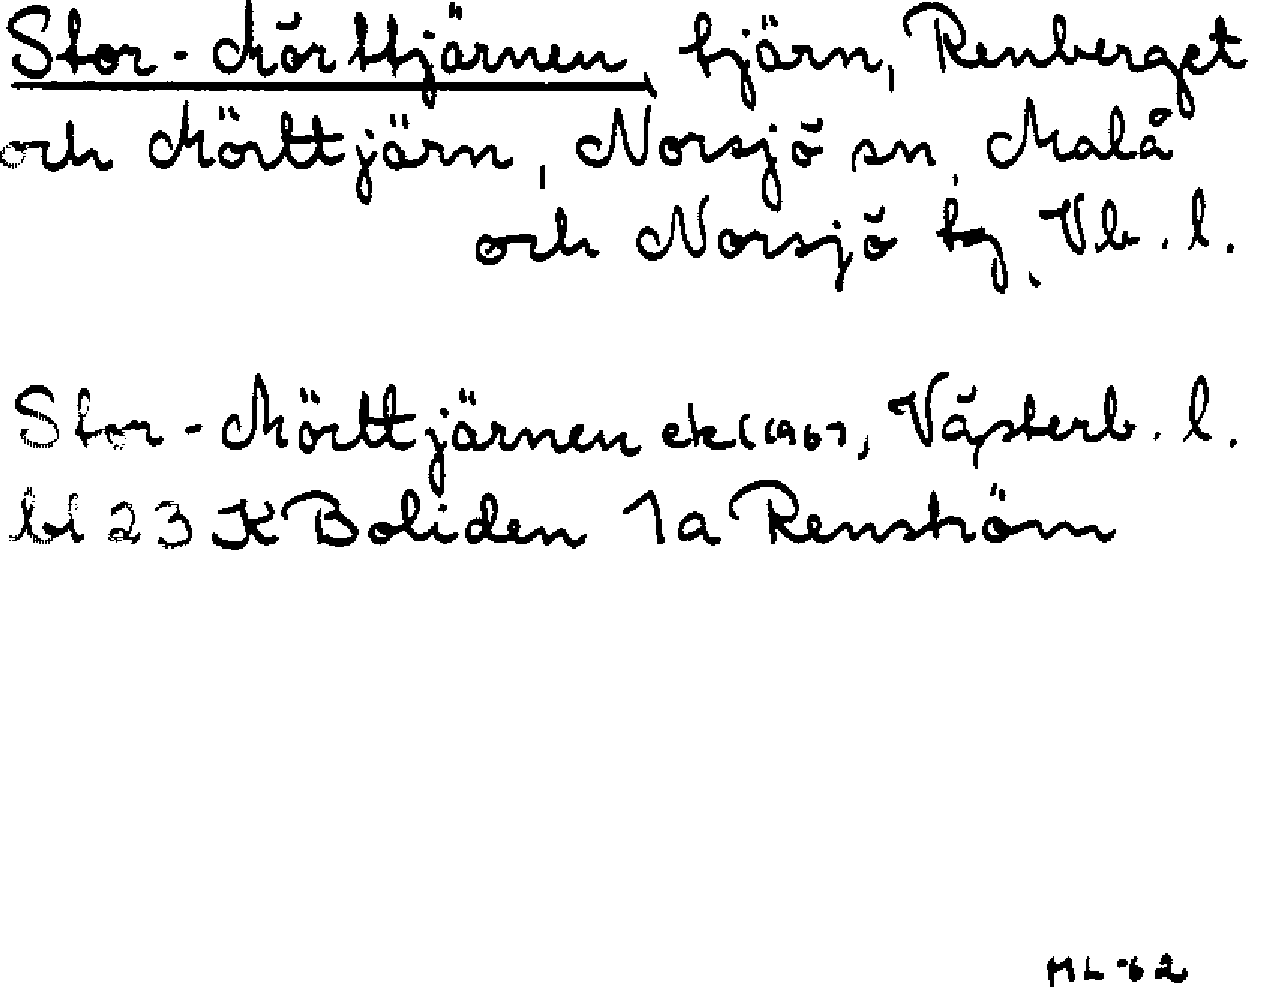 Stor-Mörttjärnen, tjärn, Renberget
och Mörttjärn, Norsjö sn, Malå
och Norsjö tg, Vb. l.
Stor-Mörttjärnen ek (1967, Västerb. l.
bl 23 K Boliden 1a Renström
ML-62